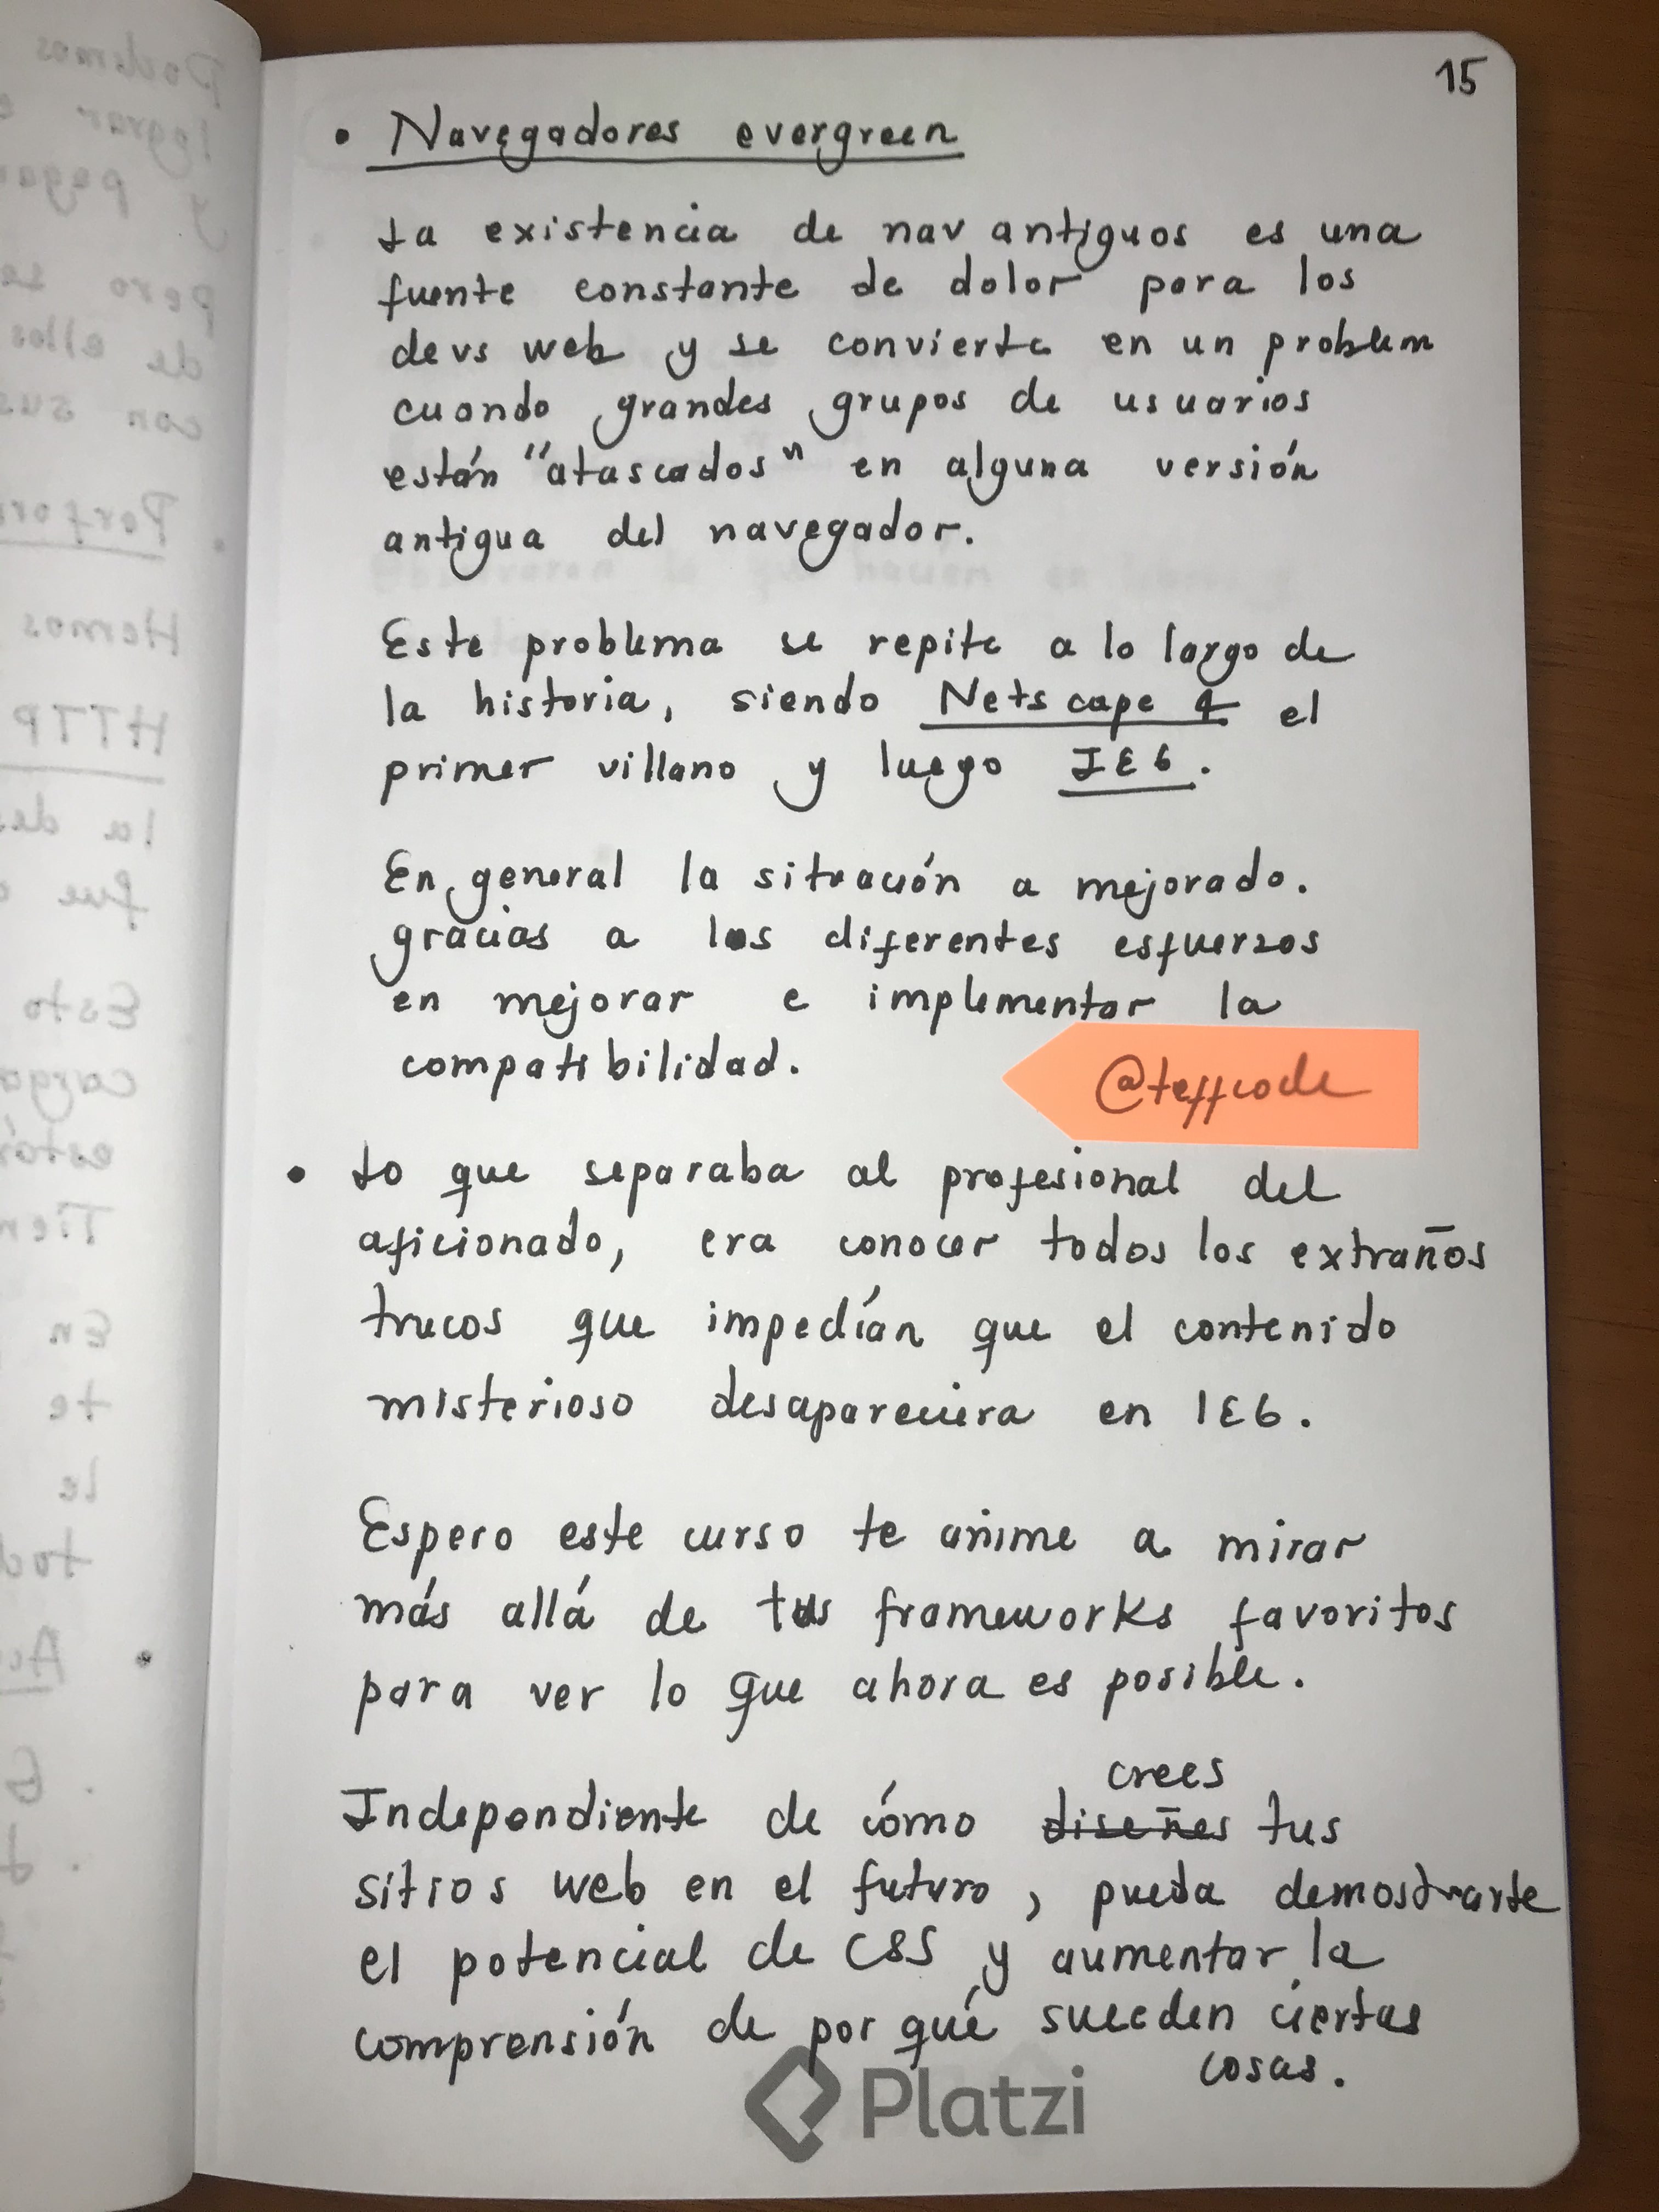 15
• Navegadores evergreen
La existencia de nav antiguos es una
fuente constante de dolor para los
devs web y se convierte en un problem
cuando grandes grupos de usuarios
están "atascados" en alguna versión
antigua del navegador.
Este problema se repite a lo largo de
la historia, siendo Netscape 4 el
primer villano y luego IE6.
En general la situación a mejorado.
gracias a los diferentes esfuerzos
en mejorar e implementar la
compatibilidad.
@teffcode
• Lo que separaba al profesional del
aficionado, era conocer todos los extraños
trucos que impedían que el contenido
misterioso desapareciera en IE6.
Espero este curso te anime a mirar
más allá de tus frameworks favoritos
para ver lo que ahora es posible.
crees
Independiente de cómo diseñes tus
sitios web en el futuro, pueda demostrarte
el potencial de CSS y aumentar la
comprensión de por qué suceden ciertas
cosas.
Platzi
Podemos
lograr
y pagar
Pero se
de ellos
con sus
Hemos
HTTP
la des
fue
Esto
están
En
te
le